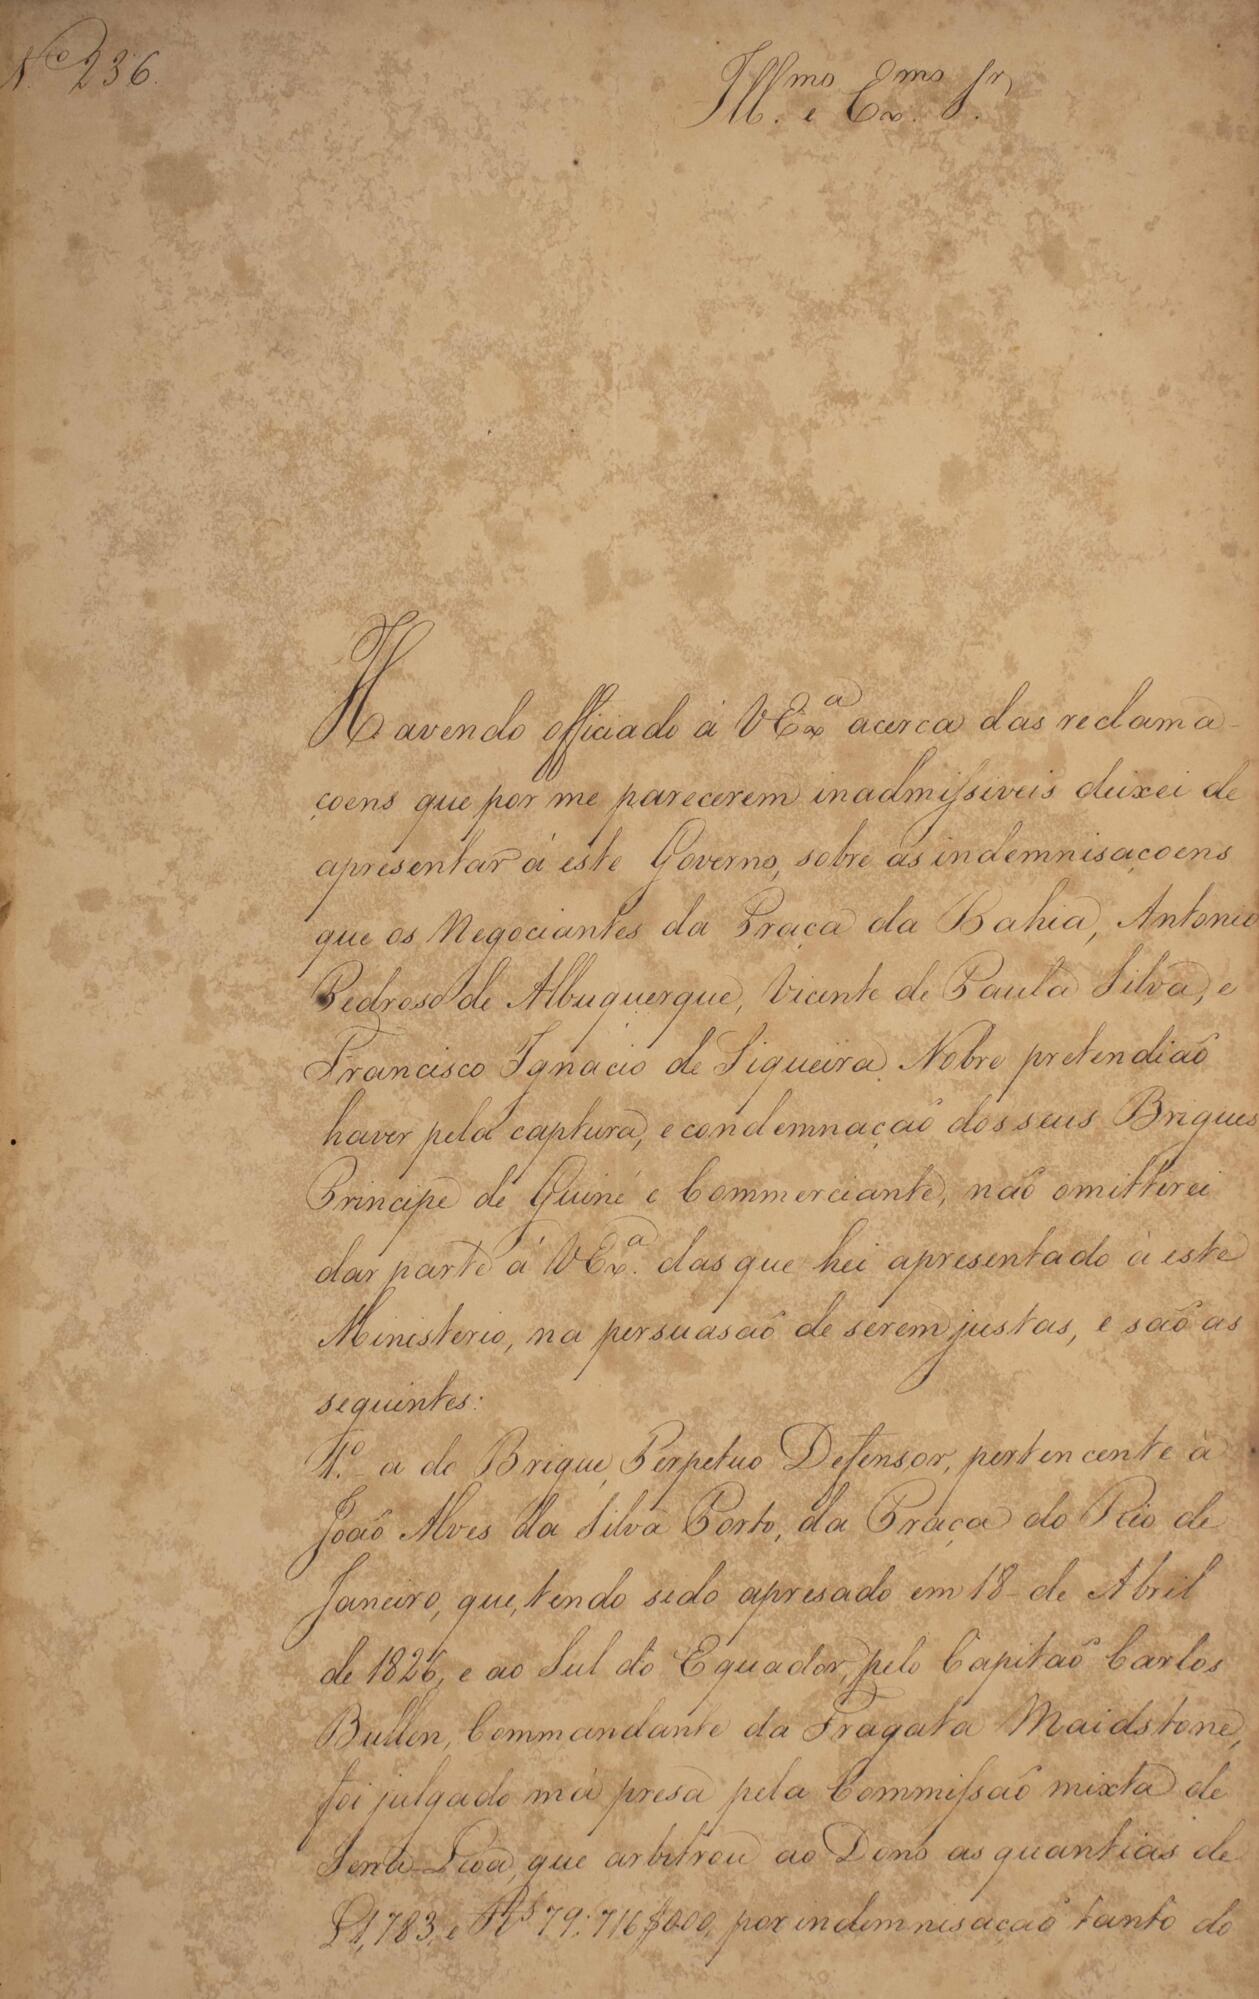 N.º 236.
Ill.mo e Ex.mo Sr.
Havendo officiado á V Ex.a acerca das reclama-
çoens que por me parecerem inadmissiveis deixei de
apresentar á este Governo, sobre as indemnisaçoens
que os Negociantes da Praça da Bahia, Antonio
Pedroso de Albuquerque, Vicente de Paula Silva, e
Francisco Ignacio de Siqueira Nobre pretendiaõ
haver pela captura, e condemnaçaõ dos seus Brigues
Principe de Guiné e Commerciante, naõ omittirei
dar parte á V Ex.a das que hei apresentado á este
Ministerio, na persuasaõ de serem justas, e saõ as
seguintes:
1.º - a do Brigue, Perpetuo Defensor, pertencente á
Joaõ Alves da Silva Porto, da Praça do Rio de
Janeiro, que, tendo sido apresado em 18 - de Abril
de 1826, e ao Sul do Equador, pelo Capitaõ Carlos
Bullen, Commandante da Fragata Maidstone,
foi julgado má presa pela Commissaõ mixta de
Serra-Lioa, que arbitrou ao Dono as quantias de
£1,783, e R.s 79:716$000, por indemnisaçaõ tanto do